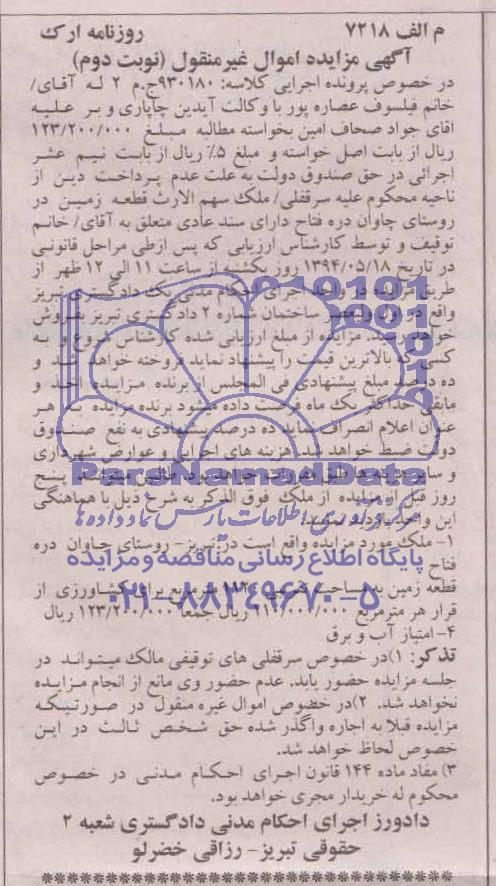 م الف ۷۲۱۸ روزنامه ارک
آگهی مزایده اموال غیرمنقول (نوبت دوم)
در خصوص پرونده اجرایی کلاسه: ۹۳۰۱۸۰ج.م ۲ له آقای/
خانم فیلسوف عصاره پور با وکالت آیدین چاپاری و بر علیه
اقای جواد صحاف امین بخواسته مطالبه مبلغ ۱۲۳/۲۰۰/۰۰۰
ریال از بابت اصل خواسته و مبلغ ۵٪ ریال از بابت نیم عشر
اجرائی در حق صندوق دولت به علت عدم پرداخت دین از
ناحیه محکوم علیه سرقفلی/ ملک سهم الارث قطعه زمین در
روستای چاوان دره فتاح دارای سند عادی متعلق به آقای/ خانم
توقیف و توسط کارشناس ارزیابی که پس ازطی مراحل قانونی
در تاریخ ۱۳۹۴/۰۵/۱۸ روز یکشنبه از ساعت ۱۱ الی ۱۲ ظهر از
طریق مزایده در واحد اجرای احکام مدنی یک دادگستری تبریز
واقع در اول ولیعصر ساختمان شماره ۲ دادگستری تبریز بفروش
خواهد رسید. مزایده از مبلغ ارزیابی شده کارشناس شروع و به
کسی که بالاترین قیمت را پیشنهاد نماید فروخته خواهد شد و
ده درصد مبلغ پیشنهادی فی المجلس از برنده مزایده اخذ و
مابقی حداکثر یک ماه فرصت داده میشود برنده مزایده به هر
عنوان اعلام انصراف نماید ده درصد پیشنهادی به نفع صندوق
دولت ضبط خواهد شد. هزینه های اجرایی و عوارض شهرداری
و سایر هزینه ها طبق مقررات خواهد بود. طالبین میتوانند پنج
روز قبل از مزایده از ملک فوق الذکر به شرح ذیل با هماهنگی
این واحد بازدید نمایند:
۱- ملک مورد مزایده واقع است در: تبریز- روستای چاوان دره
فتاح
قطعه زمین به مساحت مترمربع برای کشاورزی از
قرار هر مترمربع ریال جمعا ۱۲۳/۲۰۰/۰۰۰ ریال
۴- امتیاز آب و برق
تذکر: ۱)در خصوص سرقفلی های توقیفی مالک میتواند در
جلسه مزایده حضور یابد. عدم حضور وی مانع از انجام مزایده
نخواهد شد. ۲)در خصوص اموال غیره منقول در صورتیکه
مزایده قبلا به اجاره واگذر شده حق شخص ثالث در این
خصوص لحاظ خواهد شد.
۳) مفاد ماده ۱۴۴ قانون اجرای احکام مدنی در خصوص
محکوم له خریدار مجری خواهد بود.
دادورز اجرای احکام مدنی دادگستری شعبه ۲
حقوقی تبریز- رزاقی خضرلو
ParsNamadData
مرکز فرآوری اطلاعات پارس نماد داده ها
پایگاه اطلاع رسانی مناقصه و مزایده
۰۲۱-۸۸۳۴۹۶۷۰-۵